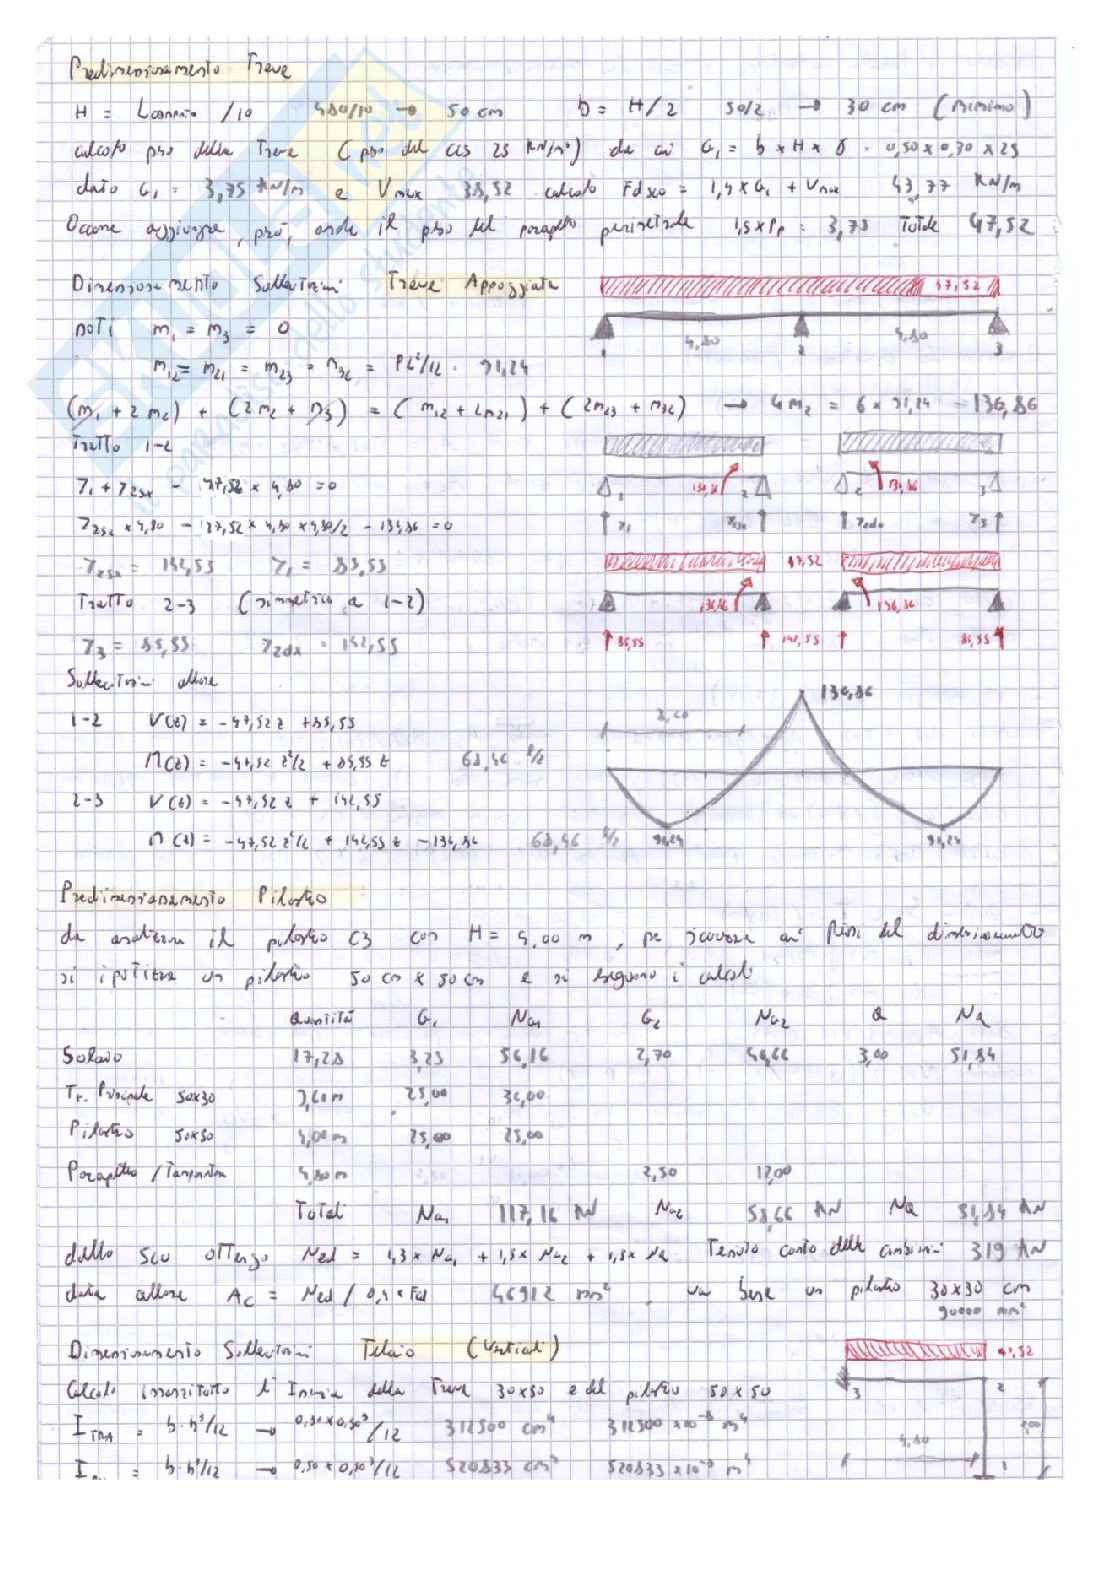 Predimensionamento Trave
H = Lcampata /10 480/10 → 50 cm b = H/2 50/2 → 30 cm (minimo)
calcolo peso della Trave (peso del cls 25 kN/m³) da cui G₁ = b × H × γ = 0,50 × 0,30 × 25
dato G₁ = 3,75 kN/m e Vmax calcolo Fd slu = 1,3 × G₁ + Vmax 43,77 kN/m
Occorre aggiungere, però, anche il peso del parapetto perimetrale 1,5 × Pp = 3,75 Totale 47,52
Dimensionamento Sollecitazioni Trave Appoggiata 47,52
noti m₁ = m₃ = 0 1 4,80 2 4,80 3
m₁₂ = m₂₁ = m₂₃ = m₃₂ = PL²/12 = 91,24
(m₁ + 2m₂) + (2m₂ + m₃) = (m₁₂ + 2m₂₁) + (2m₂₃ + m₃₂) → 4m₂ = 6 × 91,24 = 136,86
Tratto 1-2
r₁ + r₂sx - 47,52 × 4,80 = 0 1 136,86 2 2 136,86 3
r₂sx × 4,80 - 47,52 × 4,80 × 4,80/2 - 136,86 = 0 r₁ r₂sx r₂dx r₃
r₂sx = 142,55 r₁ = 85,55 47,52
Tratto 2-3 (simmetrico a 1-2) 136,86 136,86
r₃ = 85,55 r₂dx = 142,55 85,55 142,55 85,55
Sollecitazioni allora
136,86
1-2 V(z) = -47,52 z + 85,55
M(z) = -47,52 z²/2 + 85,55 z 68,46 l/2
2-3 V(z) = -47,52 z + 142,55
M(z) = -47,52 z²/2 + 142,55 z - 136,86 68,46 l/2
Predimensionamento Pilastro
da analizzare il pilastro C3 con H = 4,00 m, per ricavare ai fini del dimensionamento
si ipotizza un pilastro 50 cm x 50 cm e si eseguono i calcoli
Quantità G₁ NG₁ G₂ NG₂ Q NQ
Solaio 17,28 3,25 56,16 2,70 46,66 3,00 51,84
Tr. Principale 50x30 25,00 36,00
Pilastro 50x50 4,00 m 25,00 25,00
Parapetto / Tamponatura 4,80 m 2,50 12,00
Totali NG₁ 117,16 kN NG₂ 58,66 kN NQ 51,84 kN
dallo SLU ottengo Ned = 1,3 × NG₁ + 1,5 × NG₂ + 1,5 × NQ Tenuto conto delle 319 kN
data allora Ac = Ned / 46912 mm², va bene un pilastro 30x30 cm
90000 mm²
Dimensionamento Sollecitazioni Telaio (Verticali) 47,52
Calcolo innanzitutto l'Inerzia della Trave 30x50 e del pilastro 50x50 3 2
I TRA = b·h³/12 → 0,30x0,50³/12 312500 cm⁴ 312500 x10⁻⁸ m⁴ 4,00
4,80
= b·h³/12 → 0,50 x 0,50³/12 520833 cm⁴ 520833 x10⁻⁸ m⁴ 1